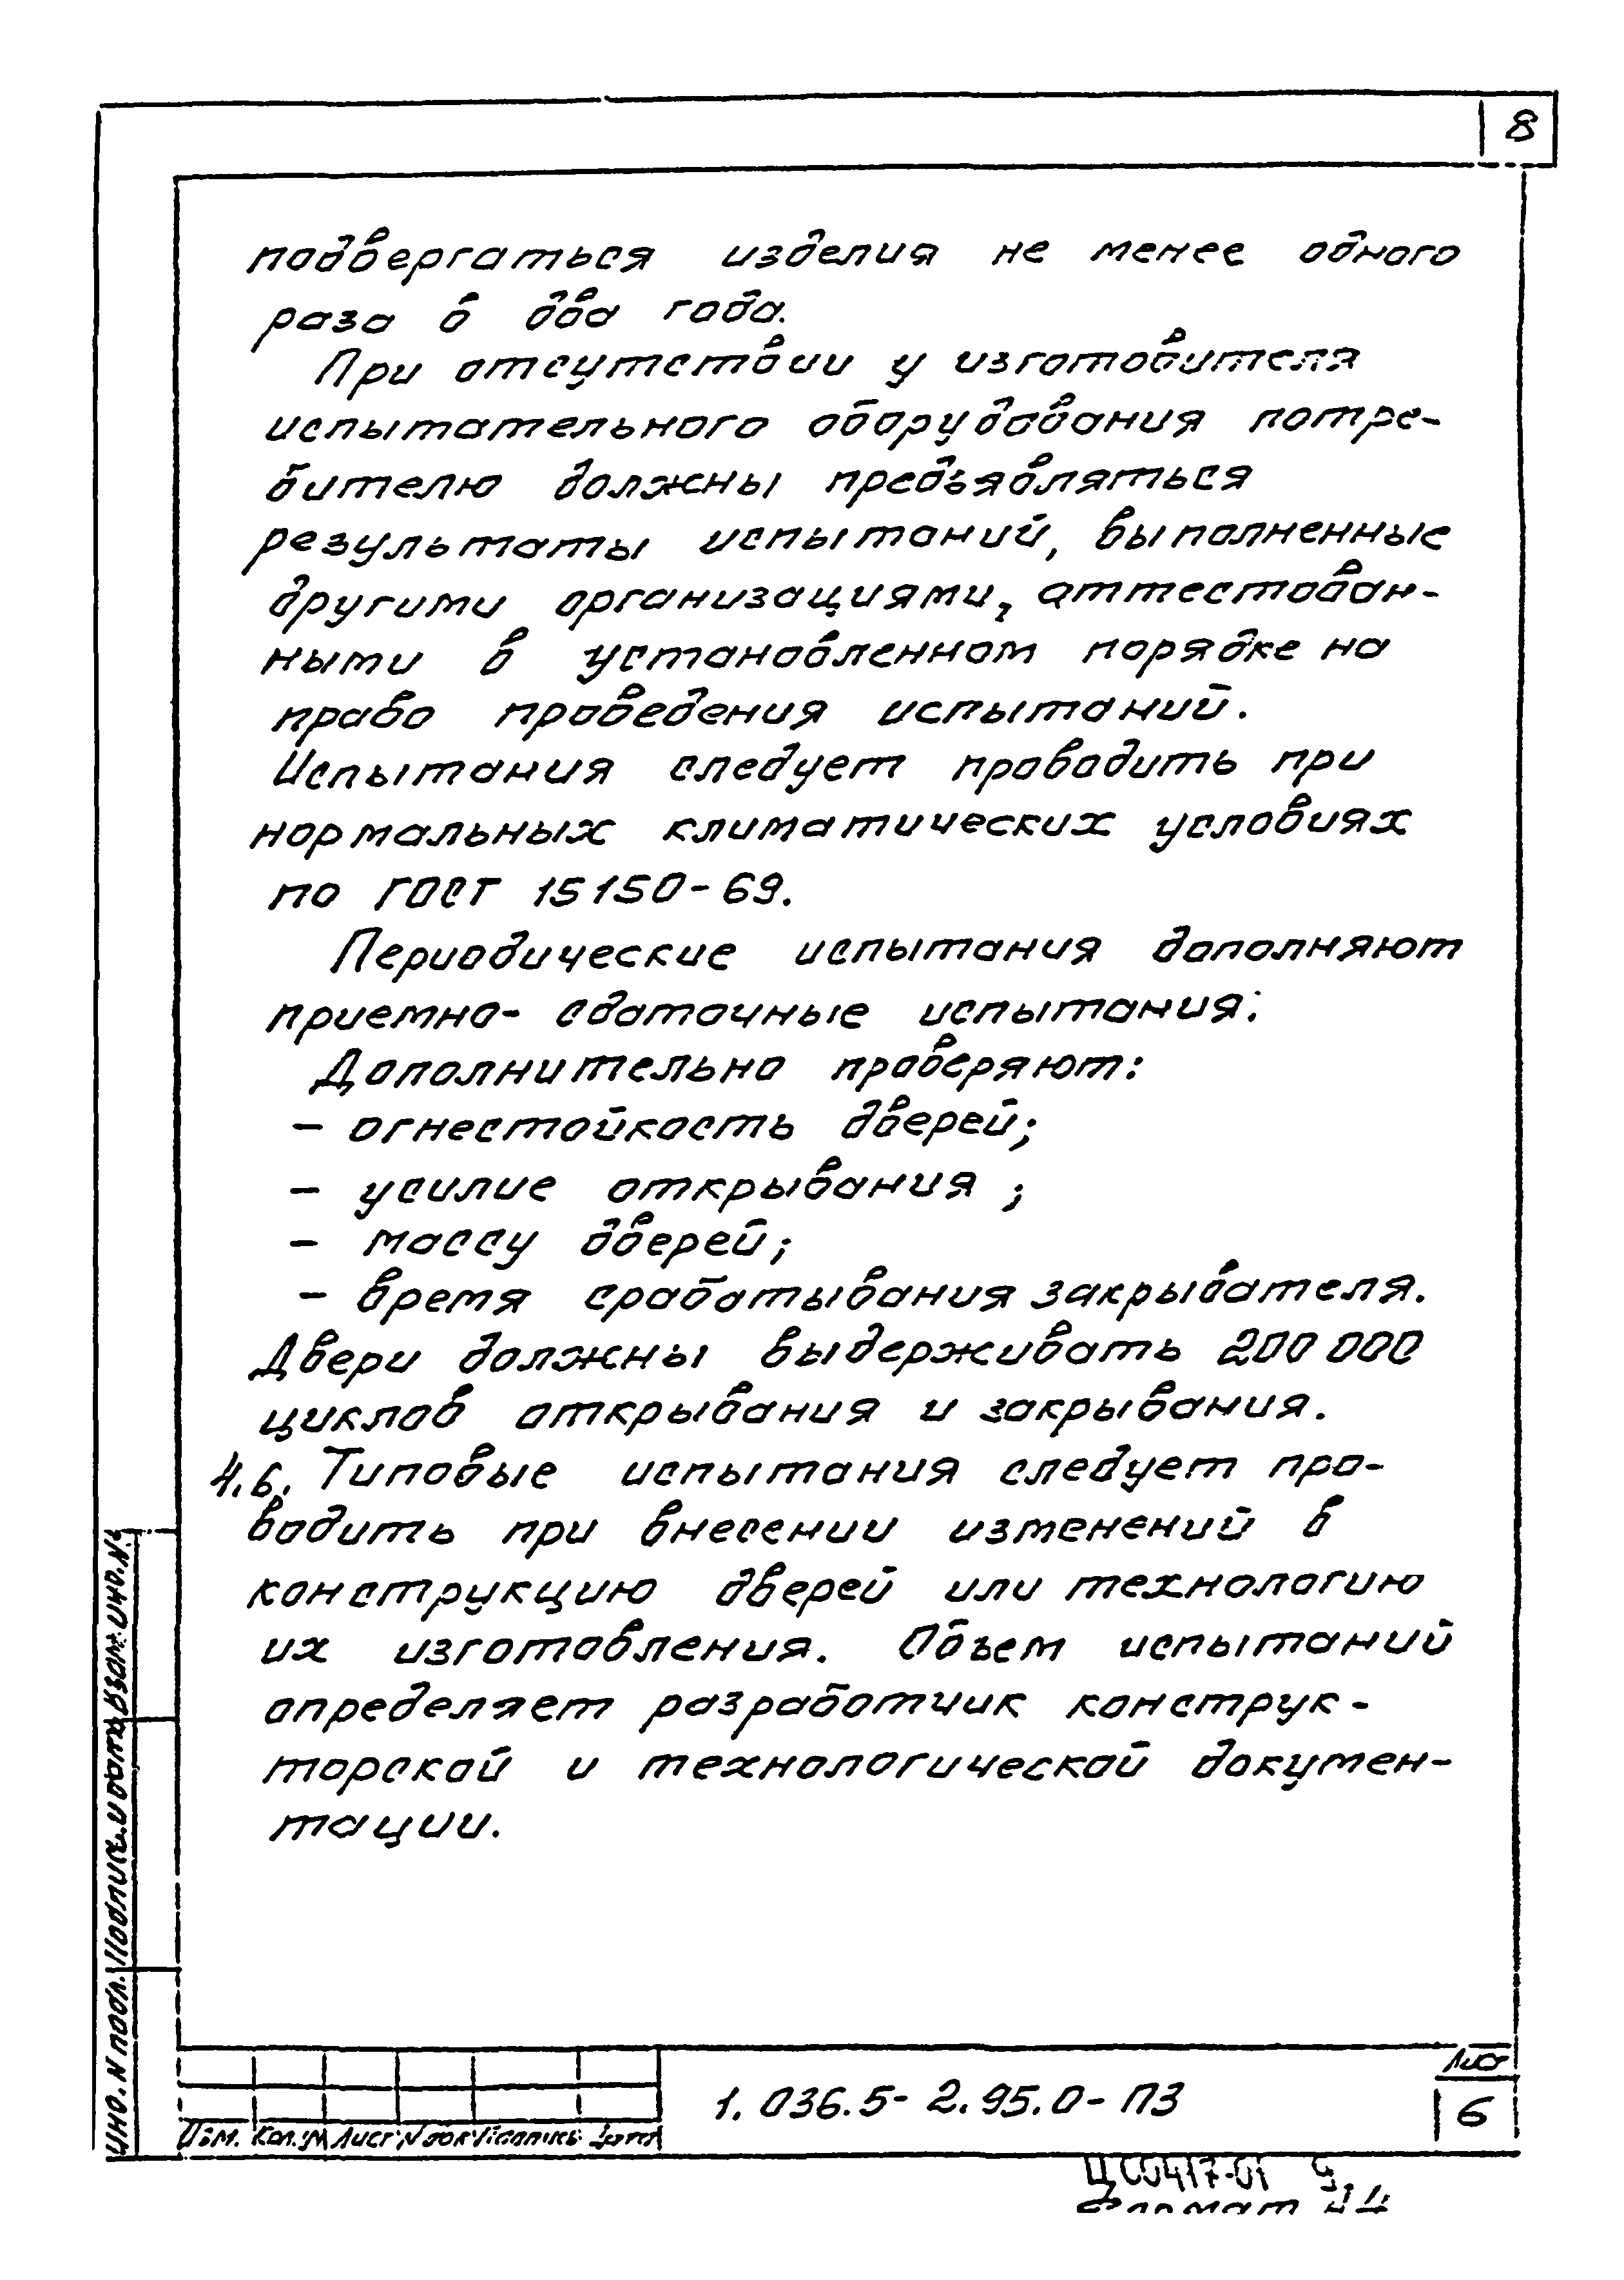 8
подвергаться изделия не менее одного
раза в два года.
При отсутствии у изготовителя
испытательного оборудования потре-
бителю должны предъявляться
результаты испытаний, выполненные
другими организациями, аттестован-
ными в установленном порядке на
право проведения испытаний.
Испытания следует проводить при
нормальных климатических условиях
по ГОСТ 15150-69.
Периодические испытания дополняют
приемно-сдаточные испытания.
Дополнительно проверяют:
- огнестойкость дверей;
- усилие открывания;
- массу дверей;
- время срабатывания закрывателя.
Двери должны выдерживать 200 000
циклов открывания и закрывания.
4.6. Типовые испытания следует про-
водить при внесении изменений в
конструкцию дверей или технологию
их изготовления. Объем испытаний
определяет разработчик конструк-
торской и технологической докумен-
тации.
Инв. N подл. Подпись и дата Взам. инв. N
Изм. Кол.уч Лист N док Подпись Дата
1.036.5-2.95.0-ПЗ
Лист
6
ЦС0417-01 9
Формат